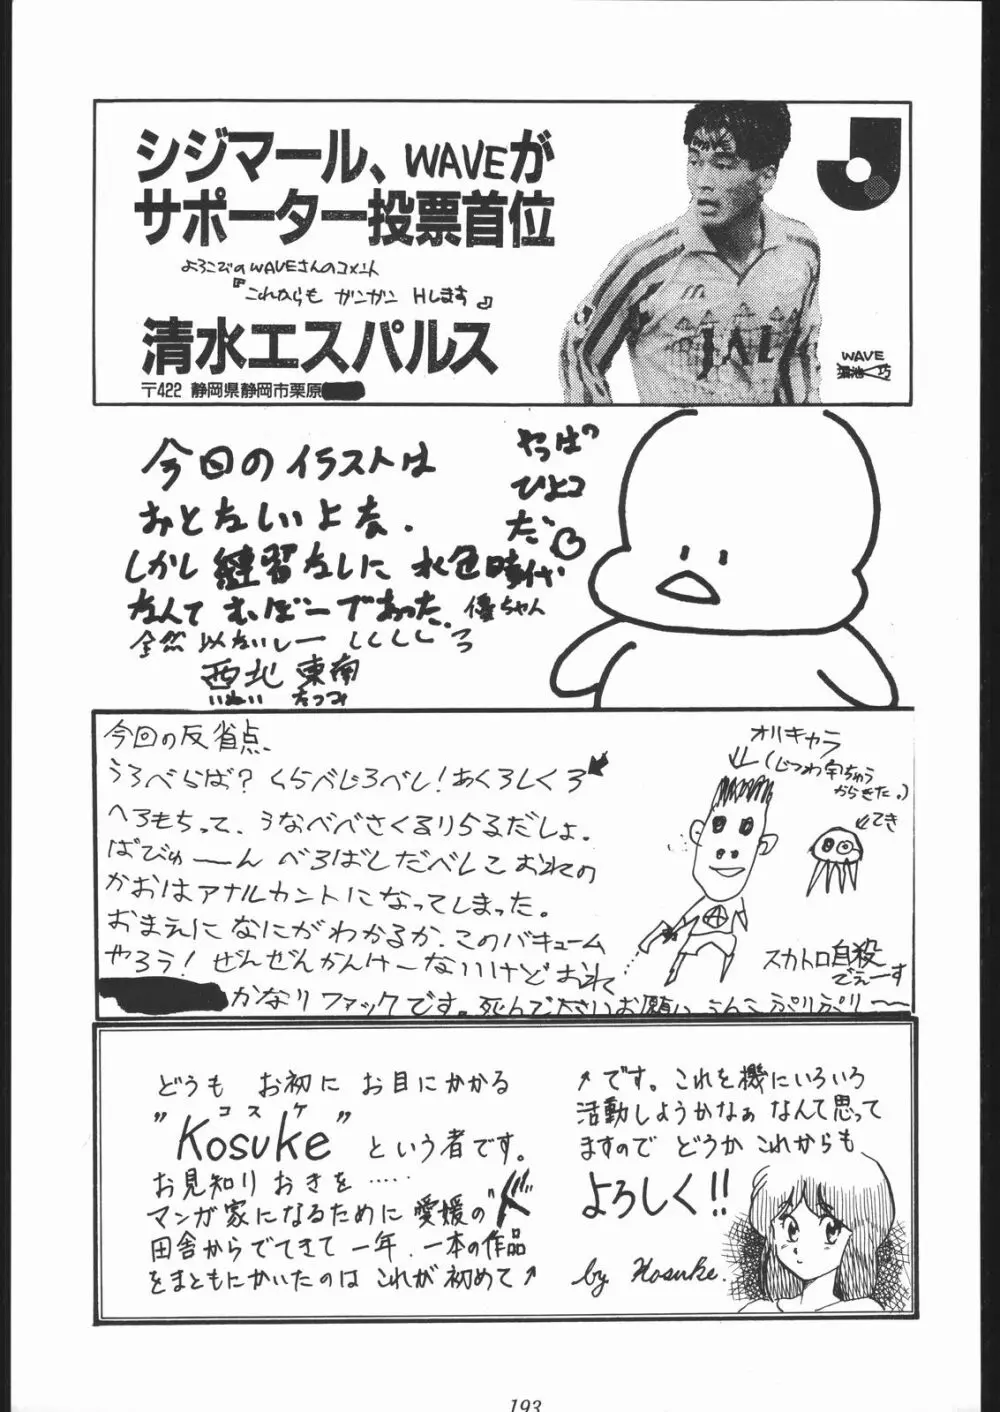 シジマール、WAVEが
サポーター投票首位
よろこびのWAVEさんのコメント
『これからも ガンガン Hします』
清水エスパルス
〒422 静岡県静岡市栗原
J
JAL
WAVE
今回のイラストは
おとなしいよな.
しかし練習なしに 水色時代
なんて むぼーであった. 優ちゃん
全然 似ないしー しくしくしくしくろ
西北 東南
いぬい たつみ
やっぱり
ひよコ
だ
今回の反省点、
うろべらば？くらべじろべし！あくろしくろ
へろもちって、うなべべさくるりらるだしょ。
ばびゅーーん べろばしだべしこ おれの
かおはアナルカントになってしまった。
おまえになにがわかるか、このバキューム
やろう！ぜんぜんかんけーないけどおれ
かなりファックです。死んで下さいお願い うんこぷりぷりーー
オリキャラ
(じつわ宇ちゅう
からきた。)
てき
スカトロ自殺
でぇーす
どうも お初に お目にかかる
コスケ
"Kosuke"という者です。
お見知りおきを……
マンガ家になるために 愛媛の"ド"
田舎からでてきて 一年. 一本の作品
をまともにかいたのは これが初めて
です。これを機にいろいろ
活動しようかなぁ なんて思って
ますので どうか これからも
よろしく!!
by Kosuke.
193